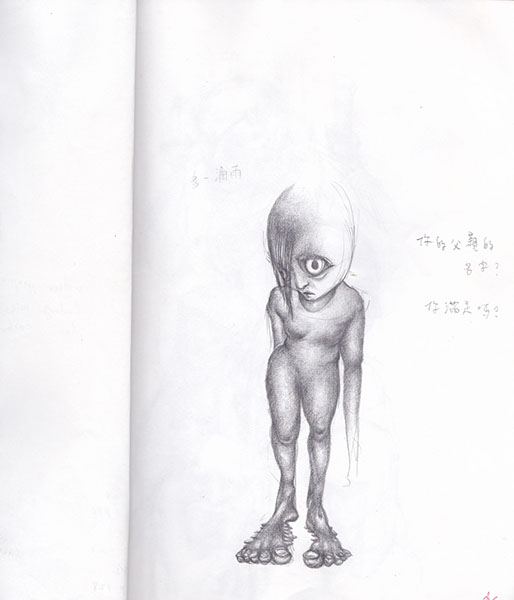 多一滴雨
你的父親的
名字?
你滿足嗎?